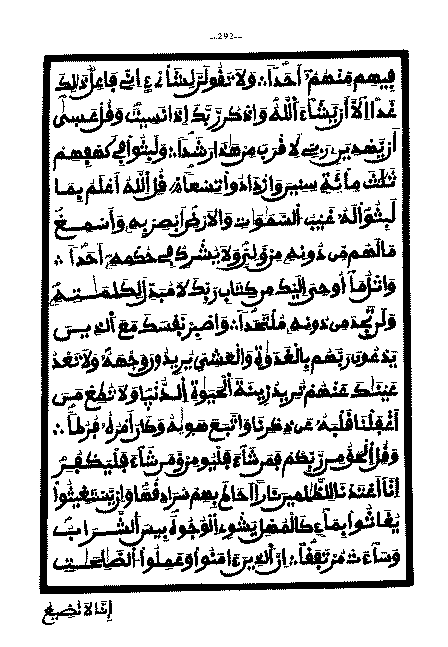 --292--
فيهم منهم أحدا ولا تقولن لشاىء اني فاعل ذلك
غدا الا أن يشاء الله واذكر ربك إذا نسيت وقل عسى
أن يهدين ربي لأقرب من هذا رشدا ولبثوا في كهفهم
ثلث مائة سنين وازدادوا تسعا قل الله أعلم بما
لبثوا له غيب السموات والأرض أبصر به وأسمع
مالهم من دونه من ولي ولا يشرك في حكمه أحدا
واتل ما أوحي إليك من كتاب ربك لا مبدل لكلمته
ولن تجد من دونه ملتحدا واصبر نفسك مع الذين
يدعون ربهم بالغدوة والعشي يريدون وجهه ولا تعد
عينك عنهم تريد زينة الحيوة الدنيا ولا تطع من
أغفلنا قلبه عن ذكرنا واتبع هويه وكان أمره فرطا
وقل الحق من ربكم فمن شاء فليومن ومن شاء فليكفر
إنا أعتدنا للظلمين نارا أحاط بهم سرادقها وإن يستغيثوا
يغاثوا بماء كالمهل يشوي الوجوه بيس الشراب
وساءت مرتفقا إن الذين ءامنوا وعملوا الصلحت
إنا لا نضيع